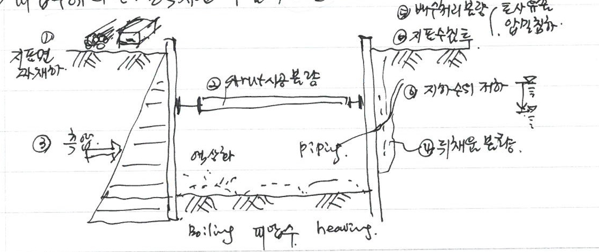 ① 지표면 과재하
② strut 시공불량
③ 측압
④ 뒤채움 불량
⑤ 배수처리 불량 토사유출 압밀침하
⑥ 지표수 침투
⑥ 지하수위 저하
piping
액상화
Boiling 피압수 heaving